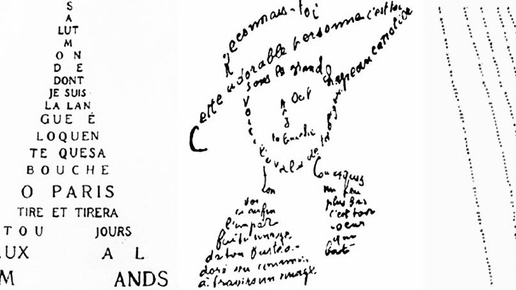 S
A
LUT
M
O N
D E
DONT
JE SUIS
LA LAN
GUE É
LOQUEN
TE QUESA
BOUCHE
O PARIS
TIRE ET TIRERA
TOU JOURS
UX A L
M ANDS
Reconnais-toi
Cette adorable personne c'est toi
Sous le grand chapeau canotier
Œil
Nez
la bouche
Voici l'ovale de ta figure
ton
cou
Voici enfin
l'imparfaite image
de ton buste adoré
vu comme
à travers un nuage
un peu
plus bas
c'est ton
cœur
qui
bat